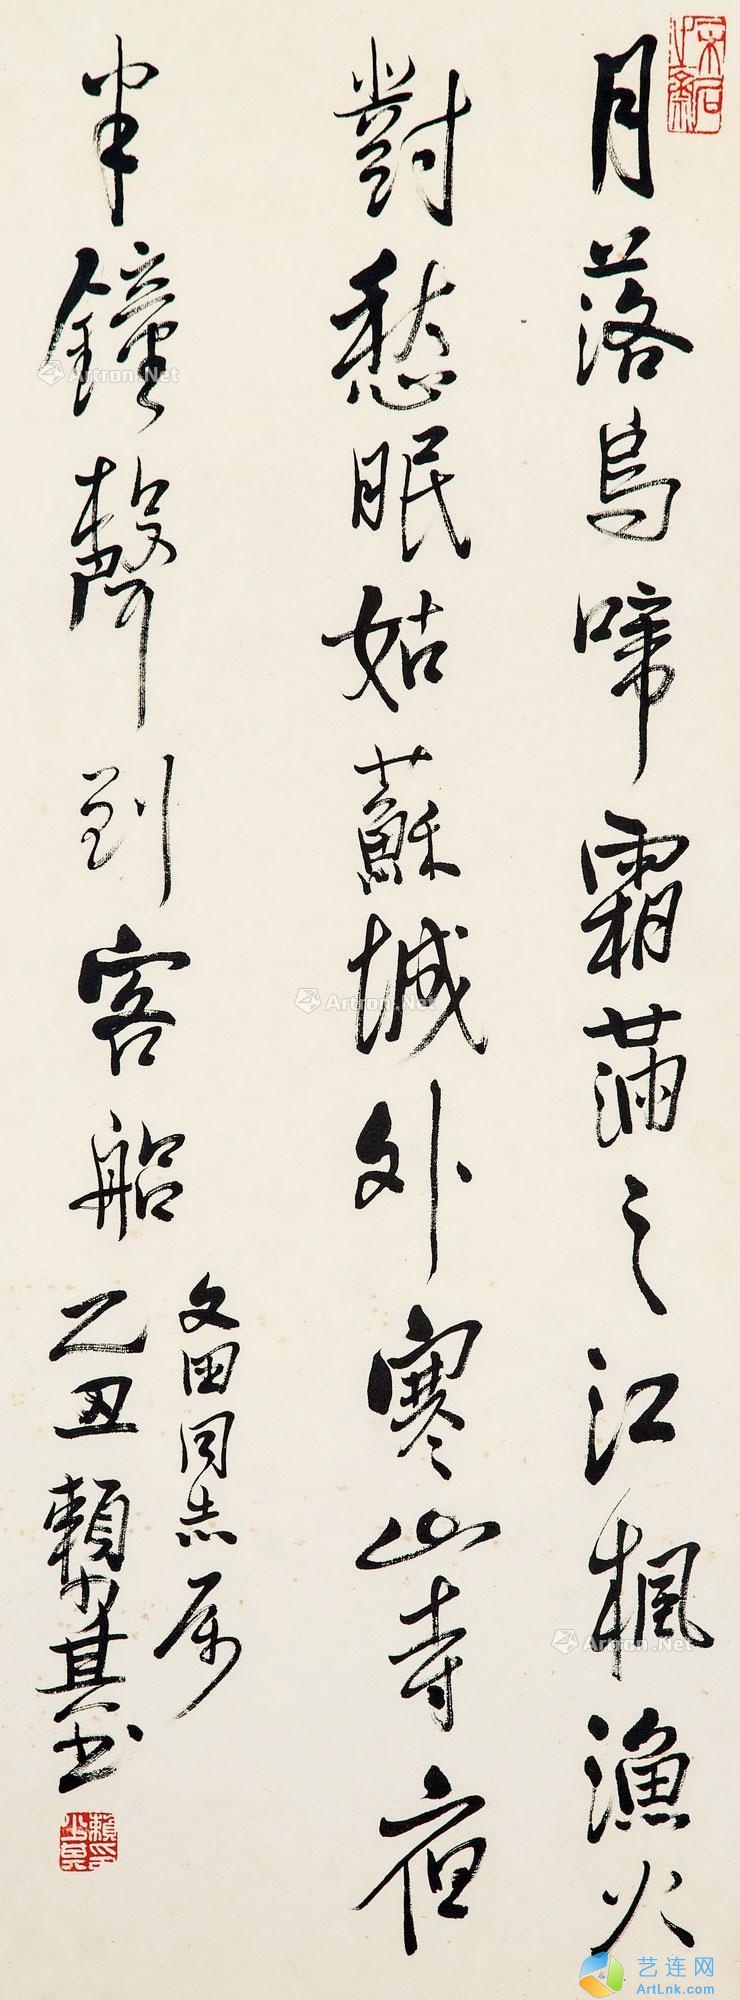 月落烏啼霜滿天江楓漁火
對愁眠姑蘇城外寒山寺夜
半鐘聲到客船
文田同志属
乙丑賴少其书
Artron.Net
Artron.Net
Artron.Net
艺连网
ArtLnk.com